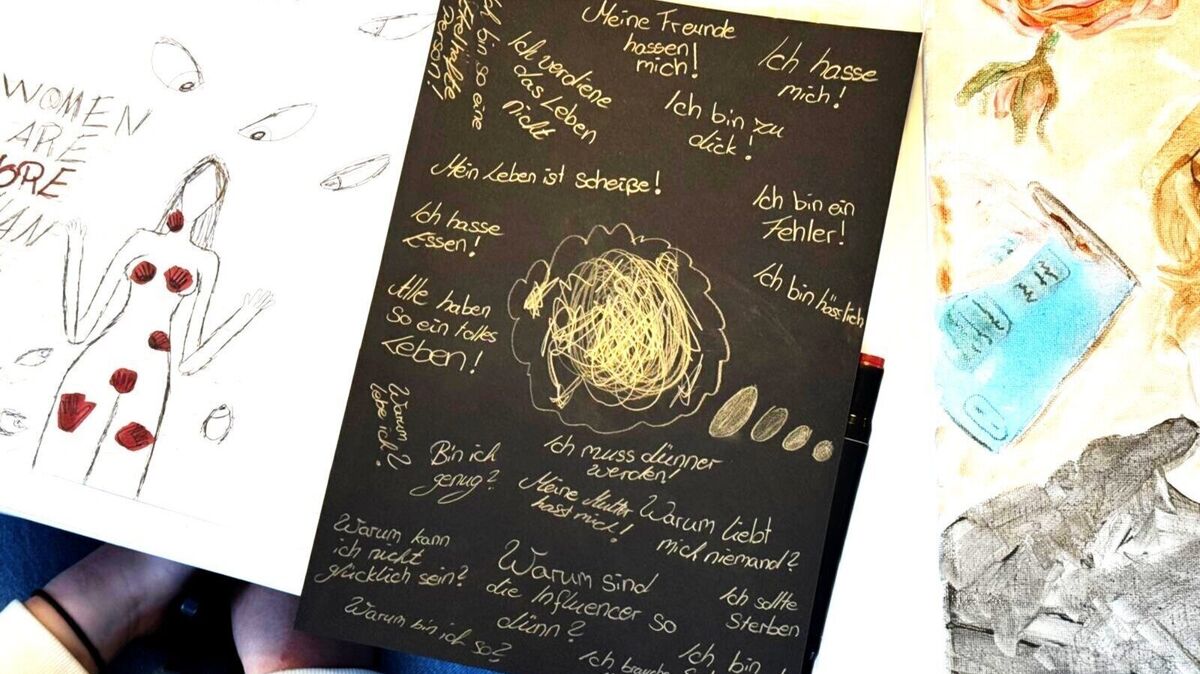 WOMEN
ARE
ORE
AN
Meine Freunde
hassen
mich!
Ich hasse
mich!
Ich bin so eine
ekelhafte
Person!
Ich verdiene
das Leben
nicht
Ich bin zu
dick!
Mein Leben ist scheiße!
Ich bin ein
Fehler!
Ich hasse
Essen!
Ich bin hässlich
Alle haben
So ein tolles
Leben!
Warum
lebe ich?
Bin ich
genug?
Ich muss dünner
werden!
Meine Mutter
hasst mich!
Warum liebt
mich niemand?
Warum kann
ich nicht
glücklich sein?
Warum sind
die Influencer so
dünn?
Ich sollte
Sterben
Warum bin ich so?
Ich brauche
Ich bin